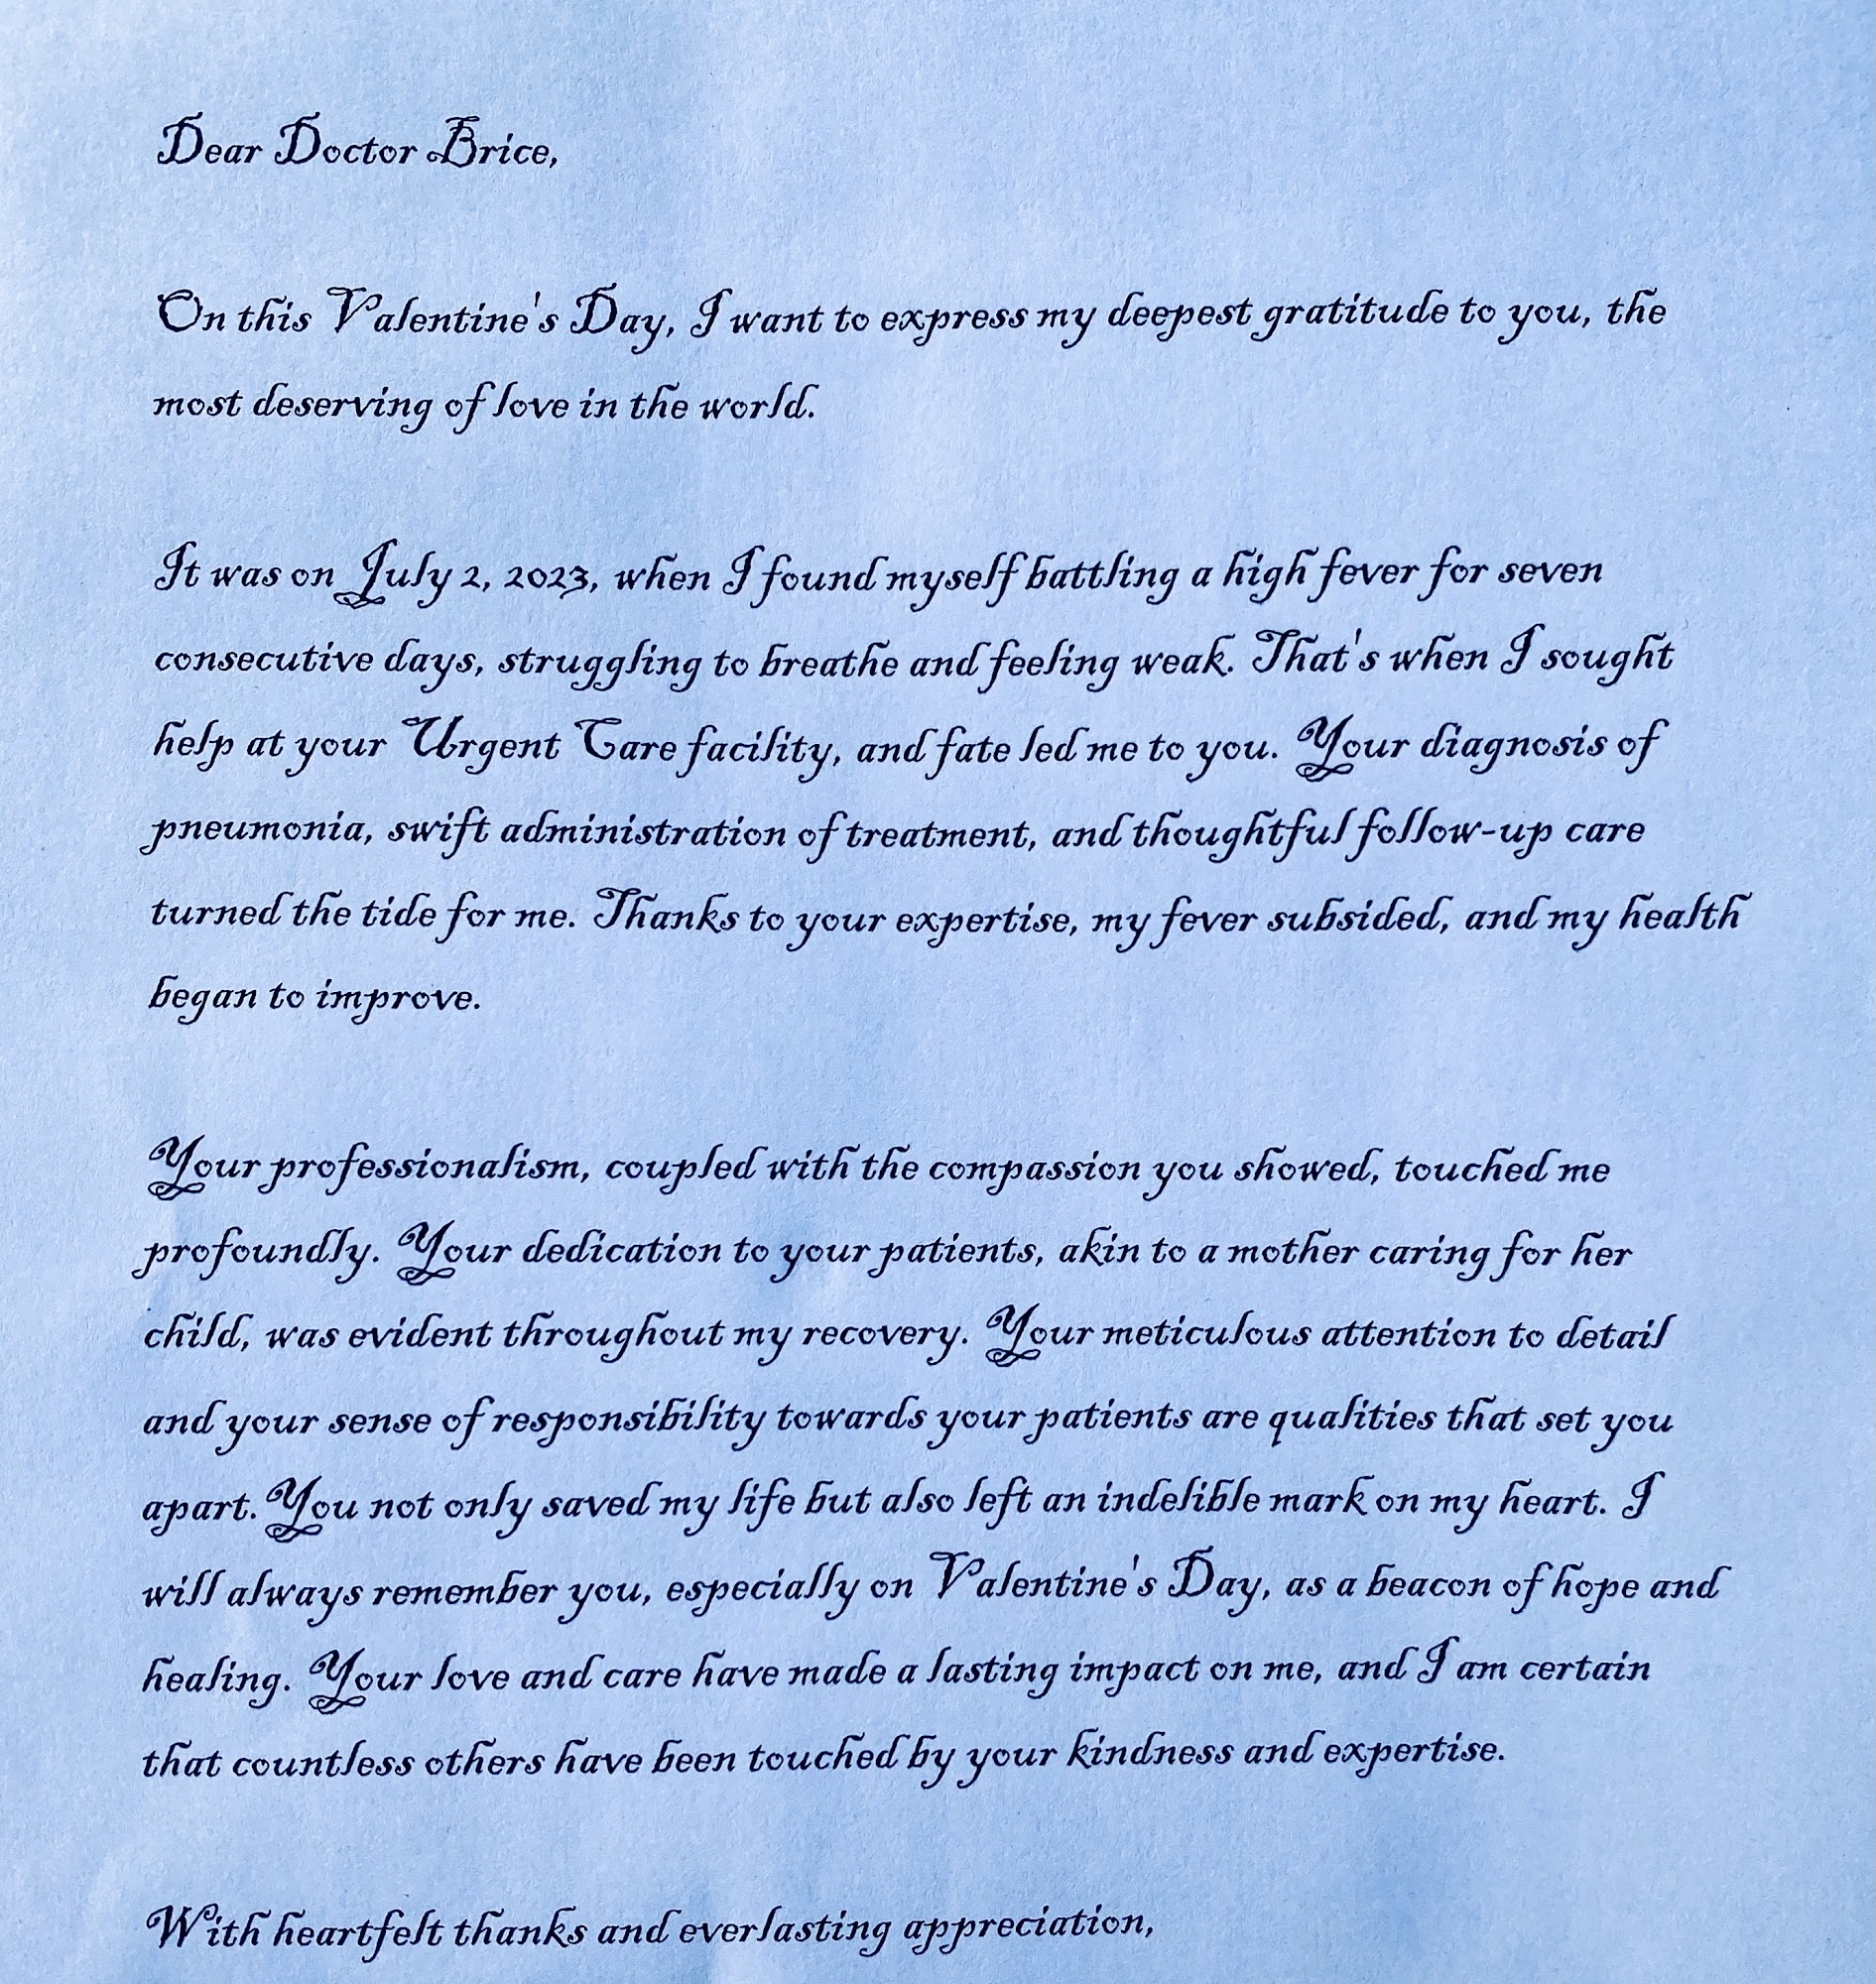 Dear Doctor Brice,
On this Valentine's Day, I want to express my deepest gratitude to you, the
most deserving of love in the world.
It was on July 2, 2023, when I found myself battling a high fever for seven
consecutive days, struggling to breathe and feeling weak. That's when I sought
help at your Urgent Care facility, and fate led me to you. Your diagnosis of
pneumonia, swift administration of treatment, and thoughtful follow-up care
turned the tide for me. Thanks to your expertise, my fever subsided, and my health
began to improve.
Your professionalism, coupled with the compassion you showed, touched me
profoundly. Your dedication to your patients, akin to a mother caring for her
child, was evident throughout my recovery. Your meticulous attention to detail
and your sense of responsibility towards your patients are qualities that set you
apart. You not only saved my life but also left an indelible mark on my heart. I
will always remember you, especially on Valentine's Day, as a beacon of hope and
healing. Your love and care have made a lasting impact on me, and I am certain
that countless others have been touched by your kindness and expertise.
With heartfelt thanks and everlasting appreciation,